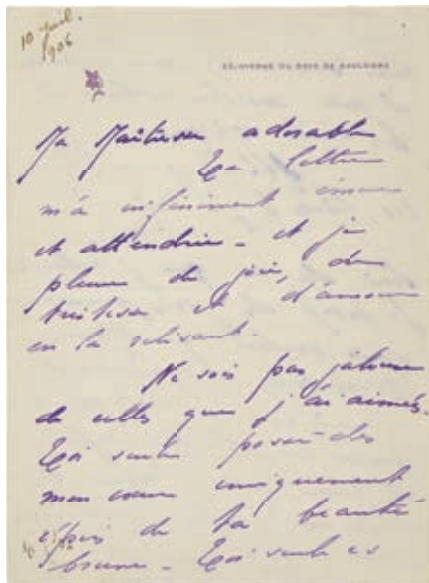 10 juil.
1906
23, AVENUE DU BOIS DE BOULOGNE
Ma Maîtresse adorable
Ta lettre
m'a infiniment émue
et attendrie - et je
pleure de joie, de
tristesse et d'amour
en la relisant.
Ne sois pas jalouse
de celles que j'ai aimées.
Toi seule possèdes
mon cœur uniquement
épris de ta beauté
brune - Toi seule es